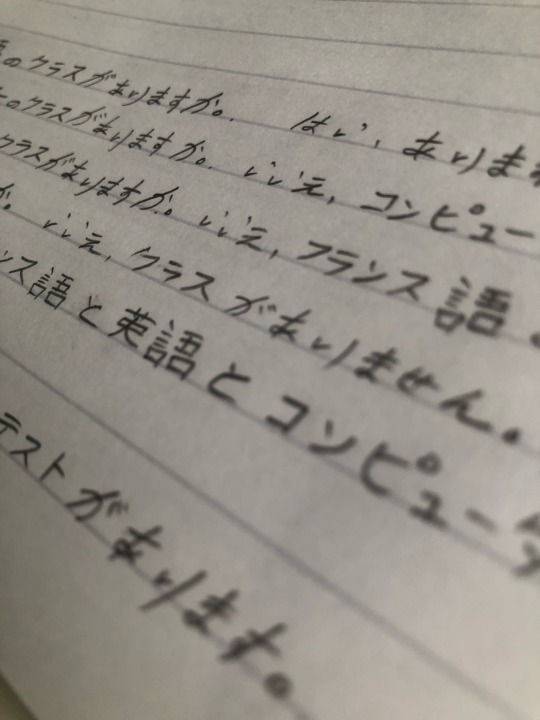 のクラスがありますか。 はい、あります
のクラスがありますか。いいえ、コンピュー
クラスがありますか。いいえ、フランス語
か。いいえ、クラスがありません。
ンス語と英語とコンピュータ
テストがあります。